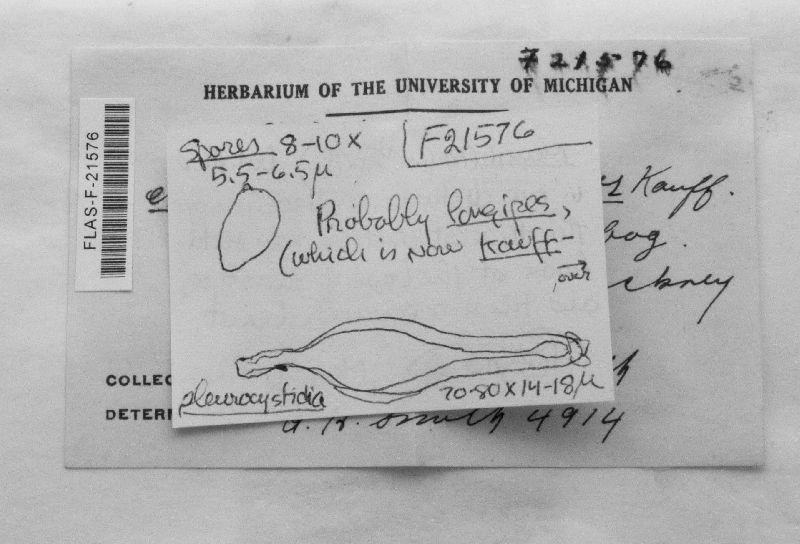 F21576
HERBARIUM OF THE UNIVERSITY OF MICHIGAN
FLAS-F-21576
spores 8-10 x
5.5-6.5µ
F21576
Probably longipes,
(which is now Kauff-
over
Kauff.
bog.
ckney
pleurocystidia
70-80 x 14-18µ
COLLEC
DETER
A. H. Smith 4914